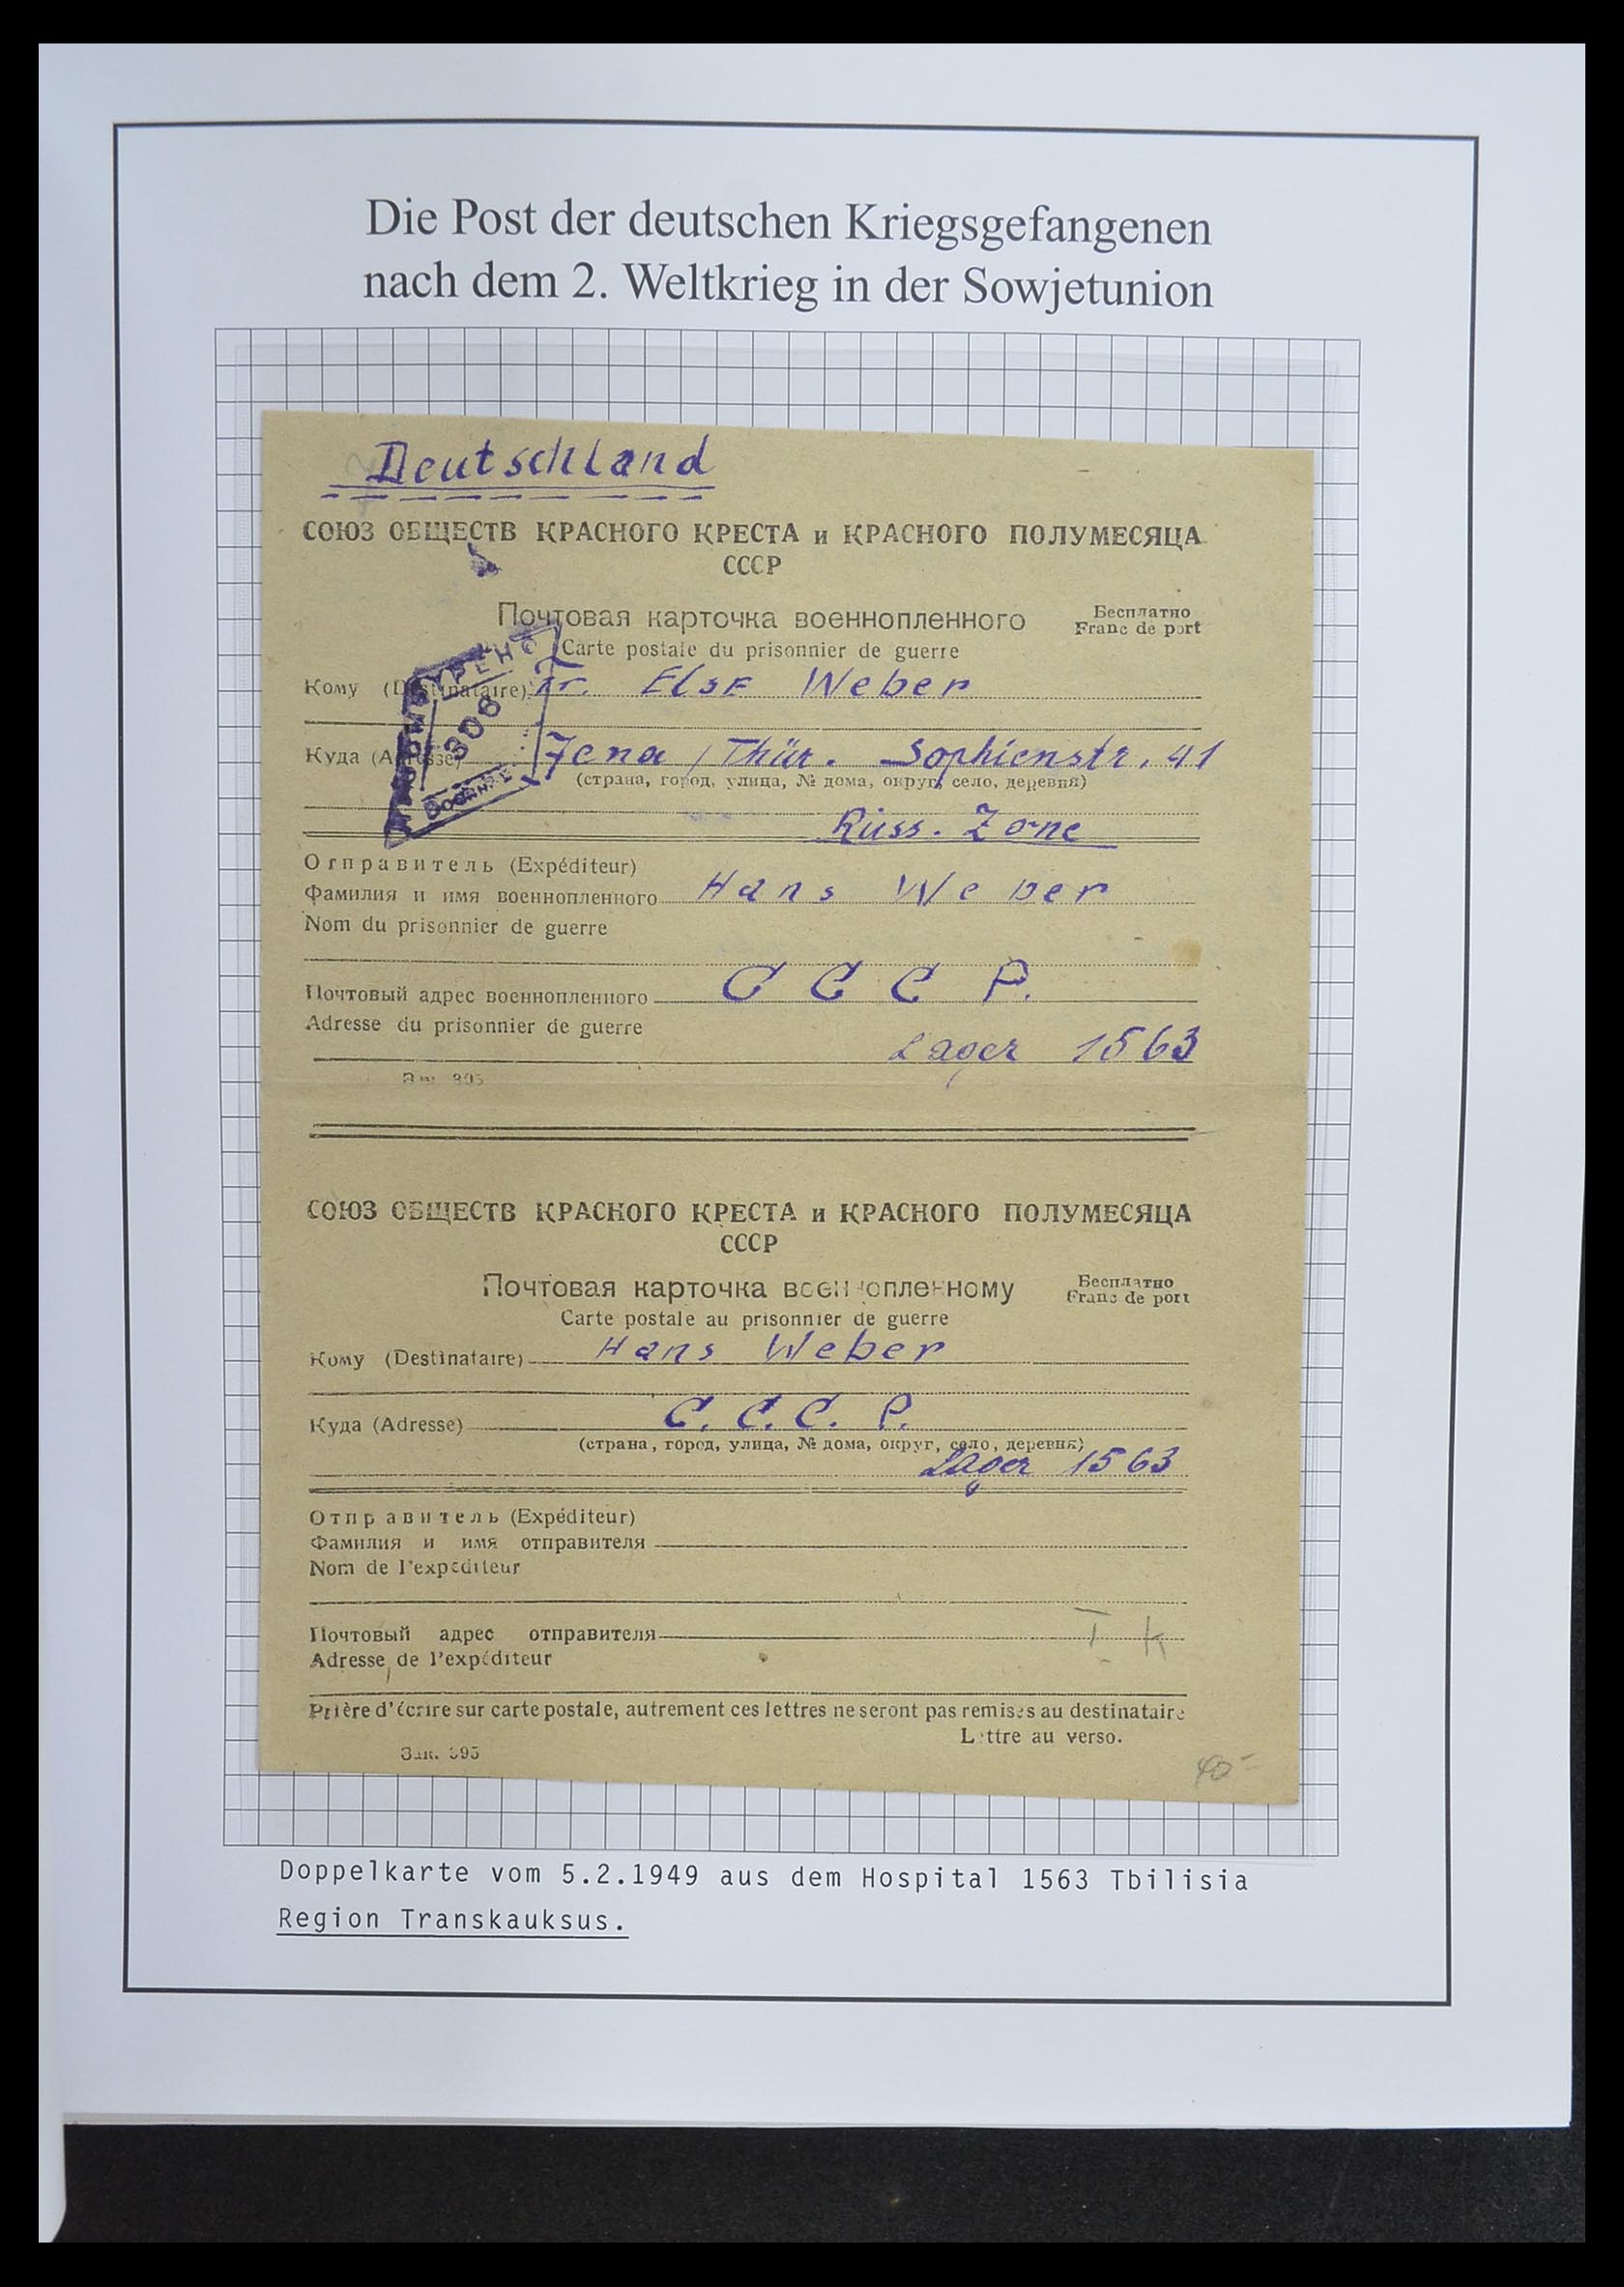 Die Post der deutschen Kriegsgefangenen
nach dem 2. Weltkrieg in der Sowjetunion
Deutschland
СОЮЗ ОБЩЕСТВ КРАСНОГО КРЕСТА и КРАСНОГО ПОЛУМЕСЯЦА
СССР
Почтовая карточка военнопленного
Бесплатно
Franc de port
Carte postale du prisonnier de guerre
Кому (Destinataire) Fr. Else Weber
308
Куда (Adresse) Jena / Thür. Sophienstr. 41
(страна, город, улица, № дома, округ, село, деревня)
Russ. Zone
Отправитель (Expéditeur)
Фамилия и имя военнопленного Hans Weber
Nom du prisonnier de guerre
Почтовый адрес военнопленного C C C P.
Adresse du prisonnier de guerre
Lager 1563
Зак. 395
СОЮЗ ОБЩЕСТВ КРАСНОГО КРЕСТА и КРАСНОГО ПОЛУМЕСЯЦА
СССР
Почтовая карточка военнопленному
Бесплатно
Franc de port
Carte postale au prisonnier de guerre
Кому (Destinataire) Hans Weber
Куда (Adresse) C. C. C. P.
(страна, город, улица, № дома, округ, село, деревня)
Lager 1563
Отправитель (Expéditeur)
Фамилия и имя отправителя
Nom de l'expéditeur
Почтовый адрес отправителя
I K
Adresse de l'expéditeur
Prière d'écrire sur carte postale, autrement ces lettres ne seront pas remises au destinataire
Lettre au verso.
Зак. 395
40-
Doppelkarte vom 5.2.1949 aus dem Hospital 1563 Tbilisia
Region Transkauksus.